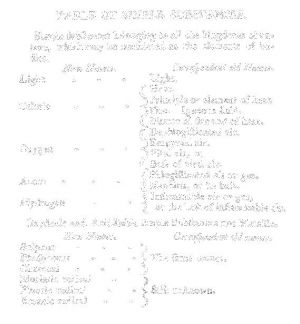 TABLE OF SIMPLE SUBSTANCES.
Simple substances belonging to all the kingdoms of na-
ture, which may be considered as the elements of bo-
dies.
New Names. Correspondent old Names.
Light Light.
Heat.
Principle or element of heat.
Caloric Fire. Igneous fluid.
Matter of fire and of heat.
Dephlogisticated air.
Empyreal air.
Oxygen Vital air, or
Base of vital air.
Phlogisticated air or gas.
Azote Mephitis, or its base.
Inflammable air or gas,
Hydrogen or the base of inflammable air.
Oxydable and Acidifiable simple Substances not Metallic.
New Names. Correspondent old names.
Sulphur
Phosphorus The same names.
Charcoal
Muriatic radical
Fluoric radical Still unknown.
Boracic radical